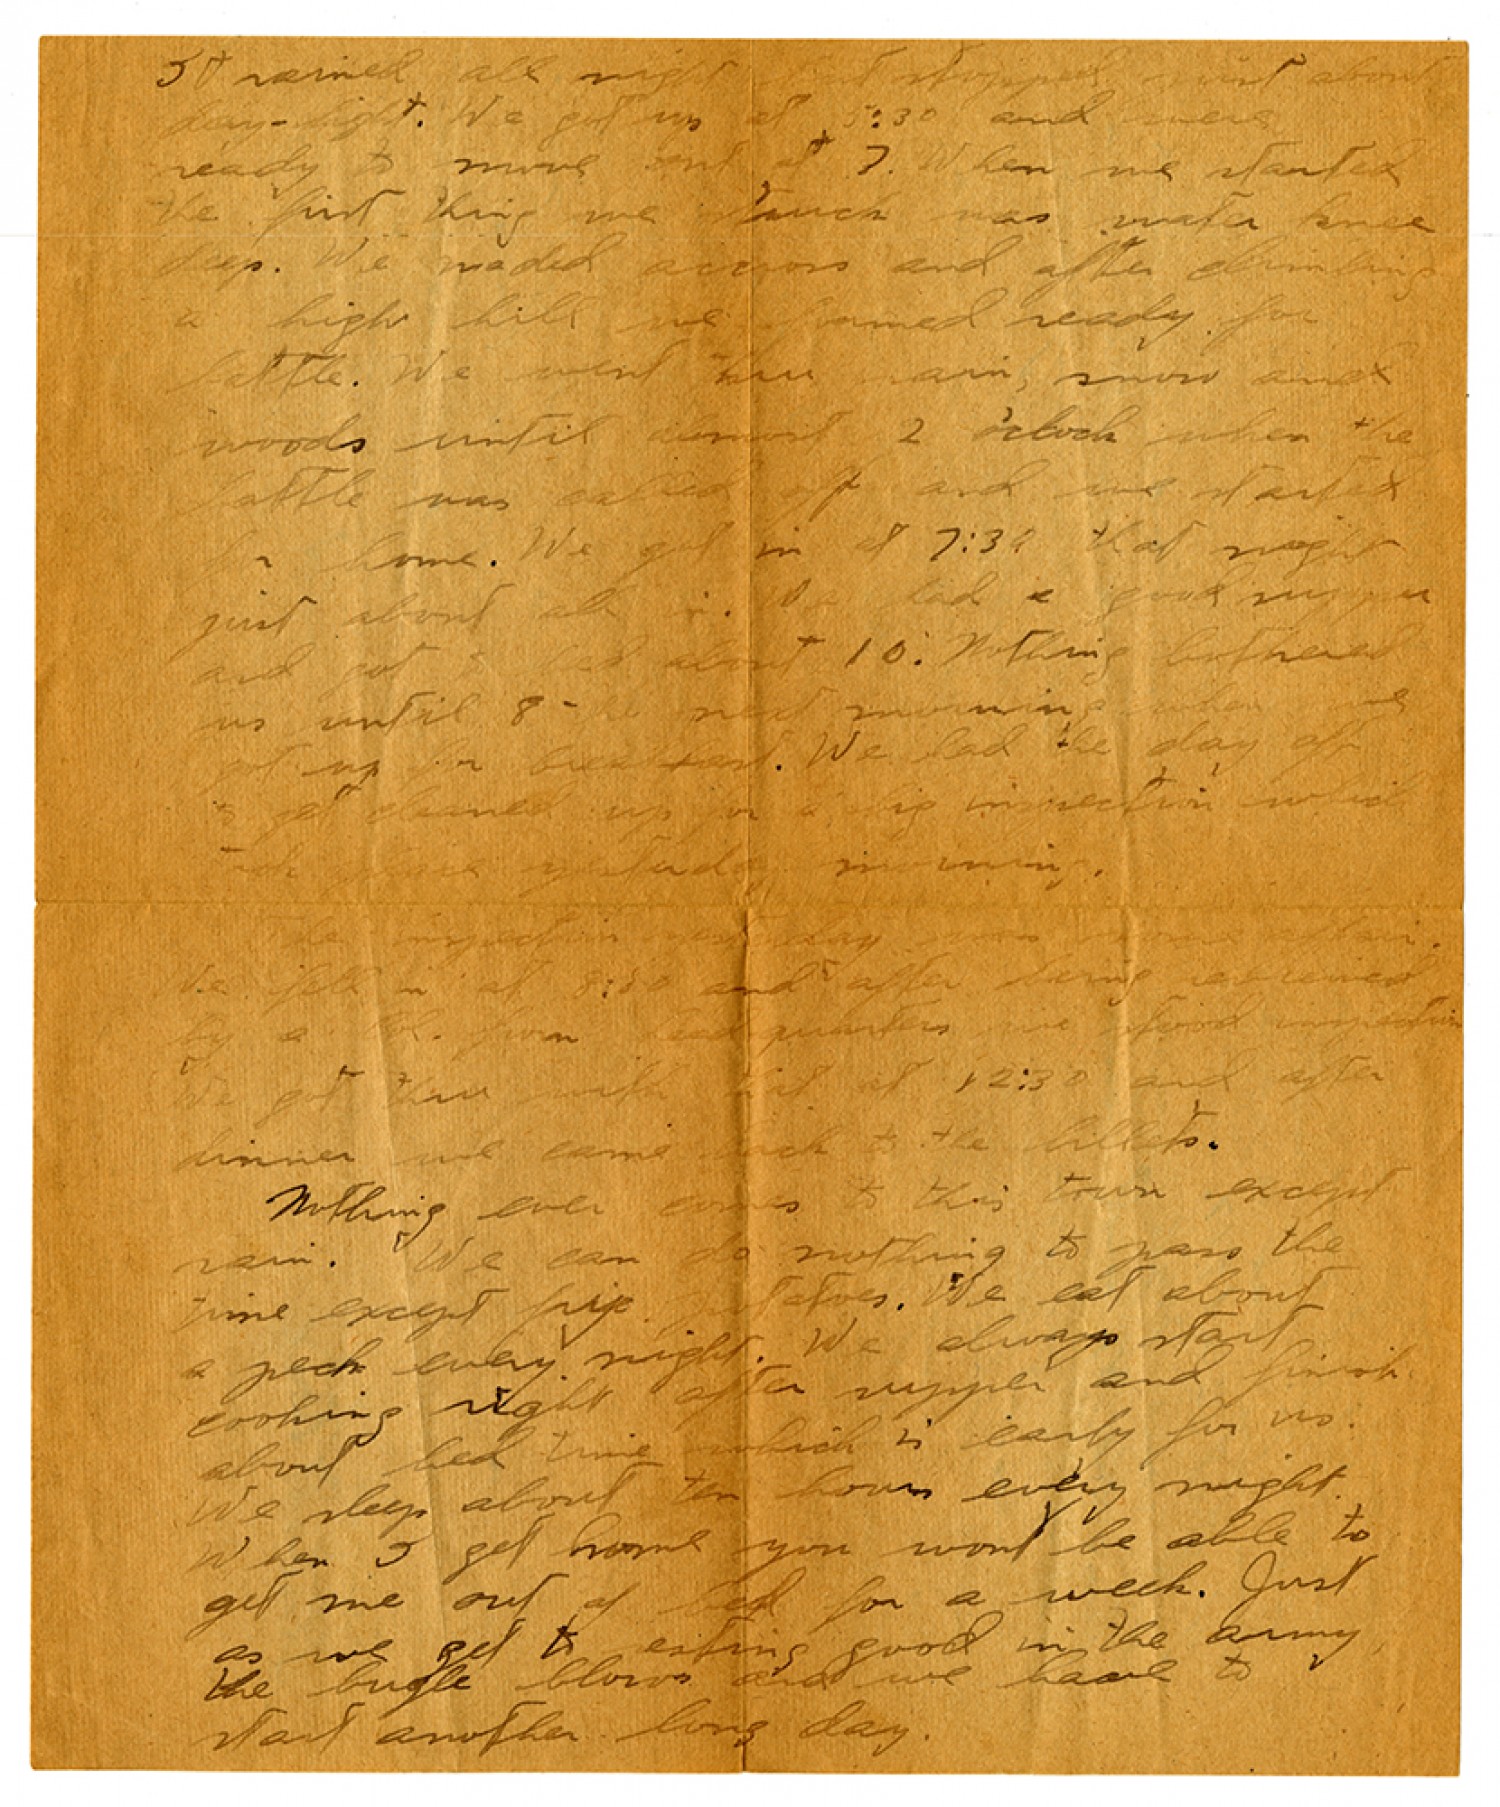 It rained all night but stopped just about
day-light. We got up at 5:30 and were
ready to move out at 7. When we started
the first thing we struck was water knee
deep. We waded across and after climbing
a high hill we formed ready for
battle. We went thru rain, snow and
woods until almost 2 o'clock when the
battle was called off and we started
for home. We got in at 7:30 that night
just about all in. We had a good supper
and got to bed about 10. Nothing bothered
us until 8 the next morning when we
got up for breakfast. We had the day off
to get cleaned up for a big inspection which
took place yesterday morning.
The inspection yesterday was some affair.
We fell in at 8:30 and after being reviewed
by a from headquarters we stood inspection
We got thru with that at 12:30 and after
dinner we came back to the billets.
Nothing ever comes to this town except
rain. We can do nothing to pass the
time except potatoes. We eat about
a peck every night. We always start
cooking right after supper and finish
about bed time which is early for us.
We sleep about ten hours every night.
When I get home you wont be able to
get me out of bed for a week. Just
as we get to resting good in the army,
the bugle blows and we have to
start another long day.